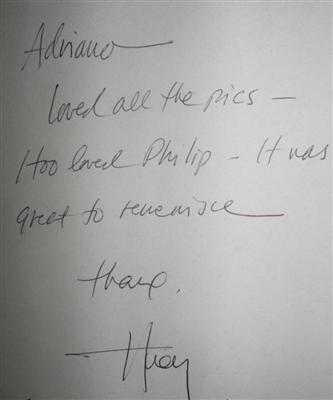 Adriano —
loved all the pics —
I too loved Philip – It was
great to reminisce